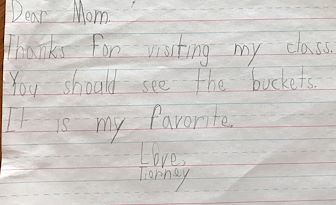 Dear Mom.
Thanks for visiting my class.
You should see the buckets.
It is my favorite
Love,
Tierney